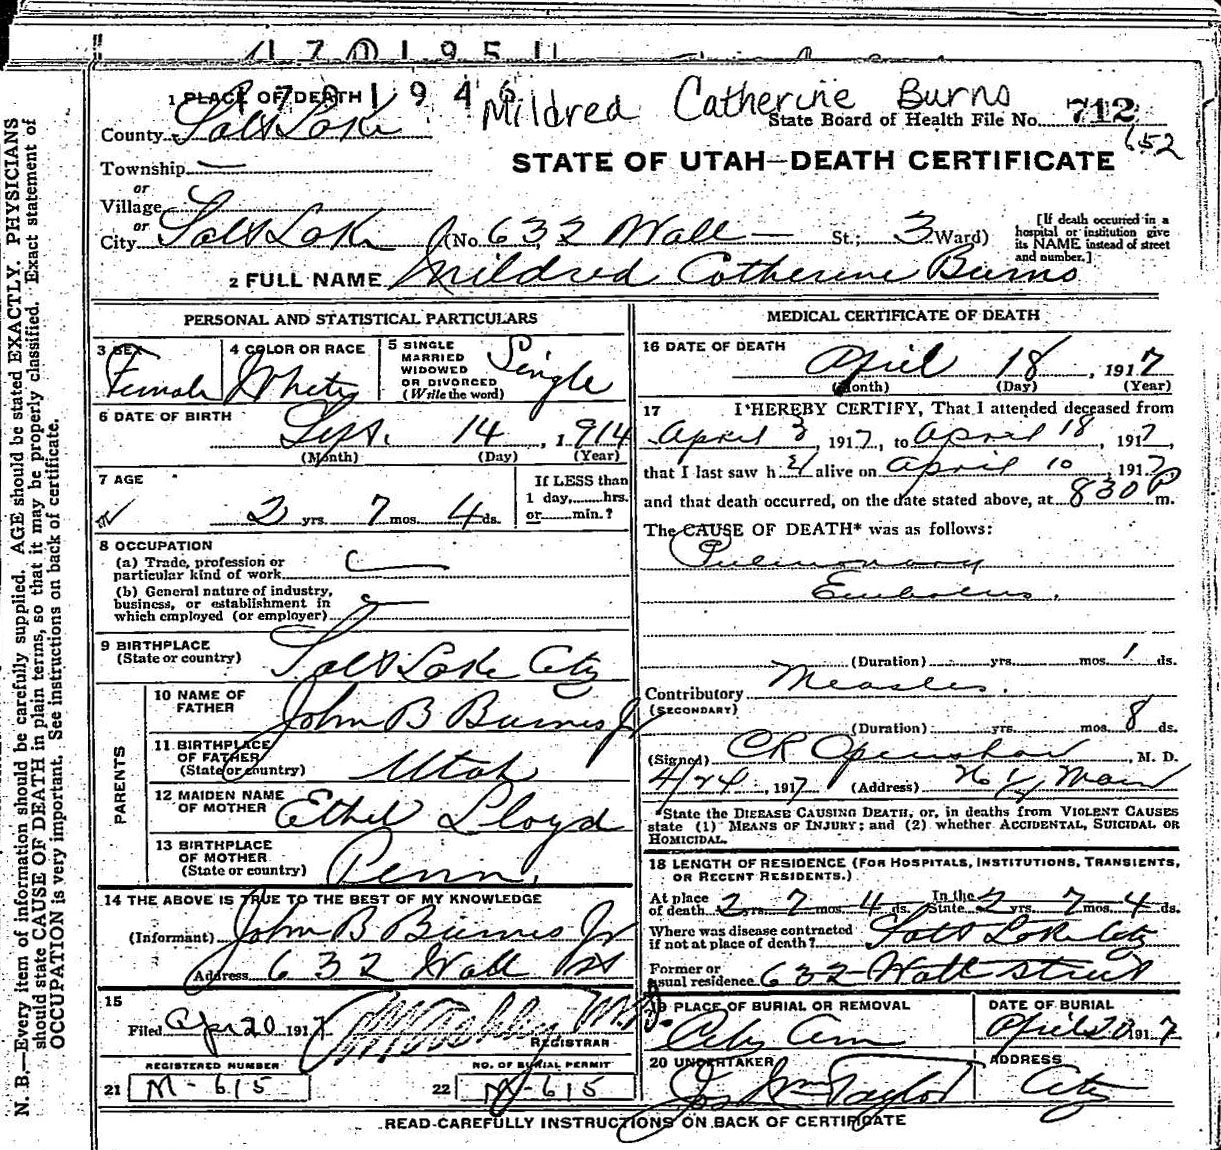 1701951
1701946
Mildred Catherine Burns
1 PLACE OF DEATH
County Salt Lake
State Board of Health File No. 712
652
Township —
STATE OF UTAH—DEATH CERTIFICATE
or
Village
or
City Salt Lake (No. 632 Wall — St.; 3 Ward)
[If death occurred in a hospital or institution give its NAME instead of street and number.]
2 FULL NAME Mildred Catherine Burns
PERSONAL AND STATISTICAL PARTICULARS
3 SEX Female
4 COLOR OR RACE White
5 SINGLE MARRIED WIDOWED OR DIVORCED (Write the word) Single
6 DATE OF BIRTH
Sept. 14, 1914
(Month) (Day) (Year)
7 AGE
2 yrs. 7 mos. 4 ds.
If LESS than
1 day,......hrs.
or......min.?
8 OCCUPATION
(a) Trade, profession or
particular kind of work
(b) General nature of industry,
business, or establishment in
which employed (or employer)
9 BIRTHPLACE
(State or country) Salt Lake City
PARENTS
10 NAME OF
FATHER John B Burns Jr
11 BIRTHPLACE
OF FATHER
(State or country) Utah
12 MAIDEN NAME
OF MOTHER Ethel Lloyd
13 BIRTHPLACE
OF MOTHER
(State or country) Penn.
14 THE ABOVE IS TRUE TO THE BEST OF MY KNOWLEDGE
(Informant) John B Burns Jr
Address 632 Wall St
15
Filed Apr 20 1917
REGISTRAR
REGISTERED NUMBER
21 M-615
NO. OF BURIAL PERMIT
22 M-615
MEDICAL CERTIFICATE OF DEATH
16 DATE OF DEATH
April 18, 1917
(Month) (Day) (Year)
17 I HEREBY CERTIFY, That I attended deceased from
April 3, 1917, to April 18, 1917,
that I last saw her alive on April 10, 1917,
and that death occurred, on the date stated above, at 830 P m.
The CAUSE OF DEATH* was as follows:
Pulmonary
Embolus.
(Duration) yrs. mos. 1 ds.
Contributory Measles.
(SECONDARY)
(Duration) yrs. mos. 8 ds.
(Signed) CR Openshaw, M. D.
4/24, 1917 (Address) Main
*State the DISEASE CAUSING DEATH, or, in deaths from VIOLENT CAUSES
state (1) MEANS OF INJURY; and (2) whether ACCIDENTAL, SUICIDAL OR
HOMICIDAL.
18 LENGTH OF RESIDENCE (FOR HOSPITALS, INSTITUTIONS, TRANSIENTS,
OR RECENT RESIDENTS.)
At place of death 2 yrs. 7 mos. 4 ds. In the State 2 yrs. 7 mos. 4 ds.
Where was disease contracted
if not at place of death? Salt Lake City
Former or
usual residence 632 Wall street
19 PLACE OF BURIAL OR REMOVAL
City Cem
DATE OF BURIAL
April 20 1917
20 UNDERTAKER
Jos Wm Taylor
ADDRESS
City
READ CAREFULLY INSTRUCTIONS ON BACK OF CERTIFICATE
N. B.—Every item of information should be carefully supplied. AGE should be stated EXACTLY. PHYSICIANS
should state CAUSE OF DEATH in plain terms, so that it may be properly classified. Exact statement of
OCCUPATION is very important. See instructions on back of certificate.